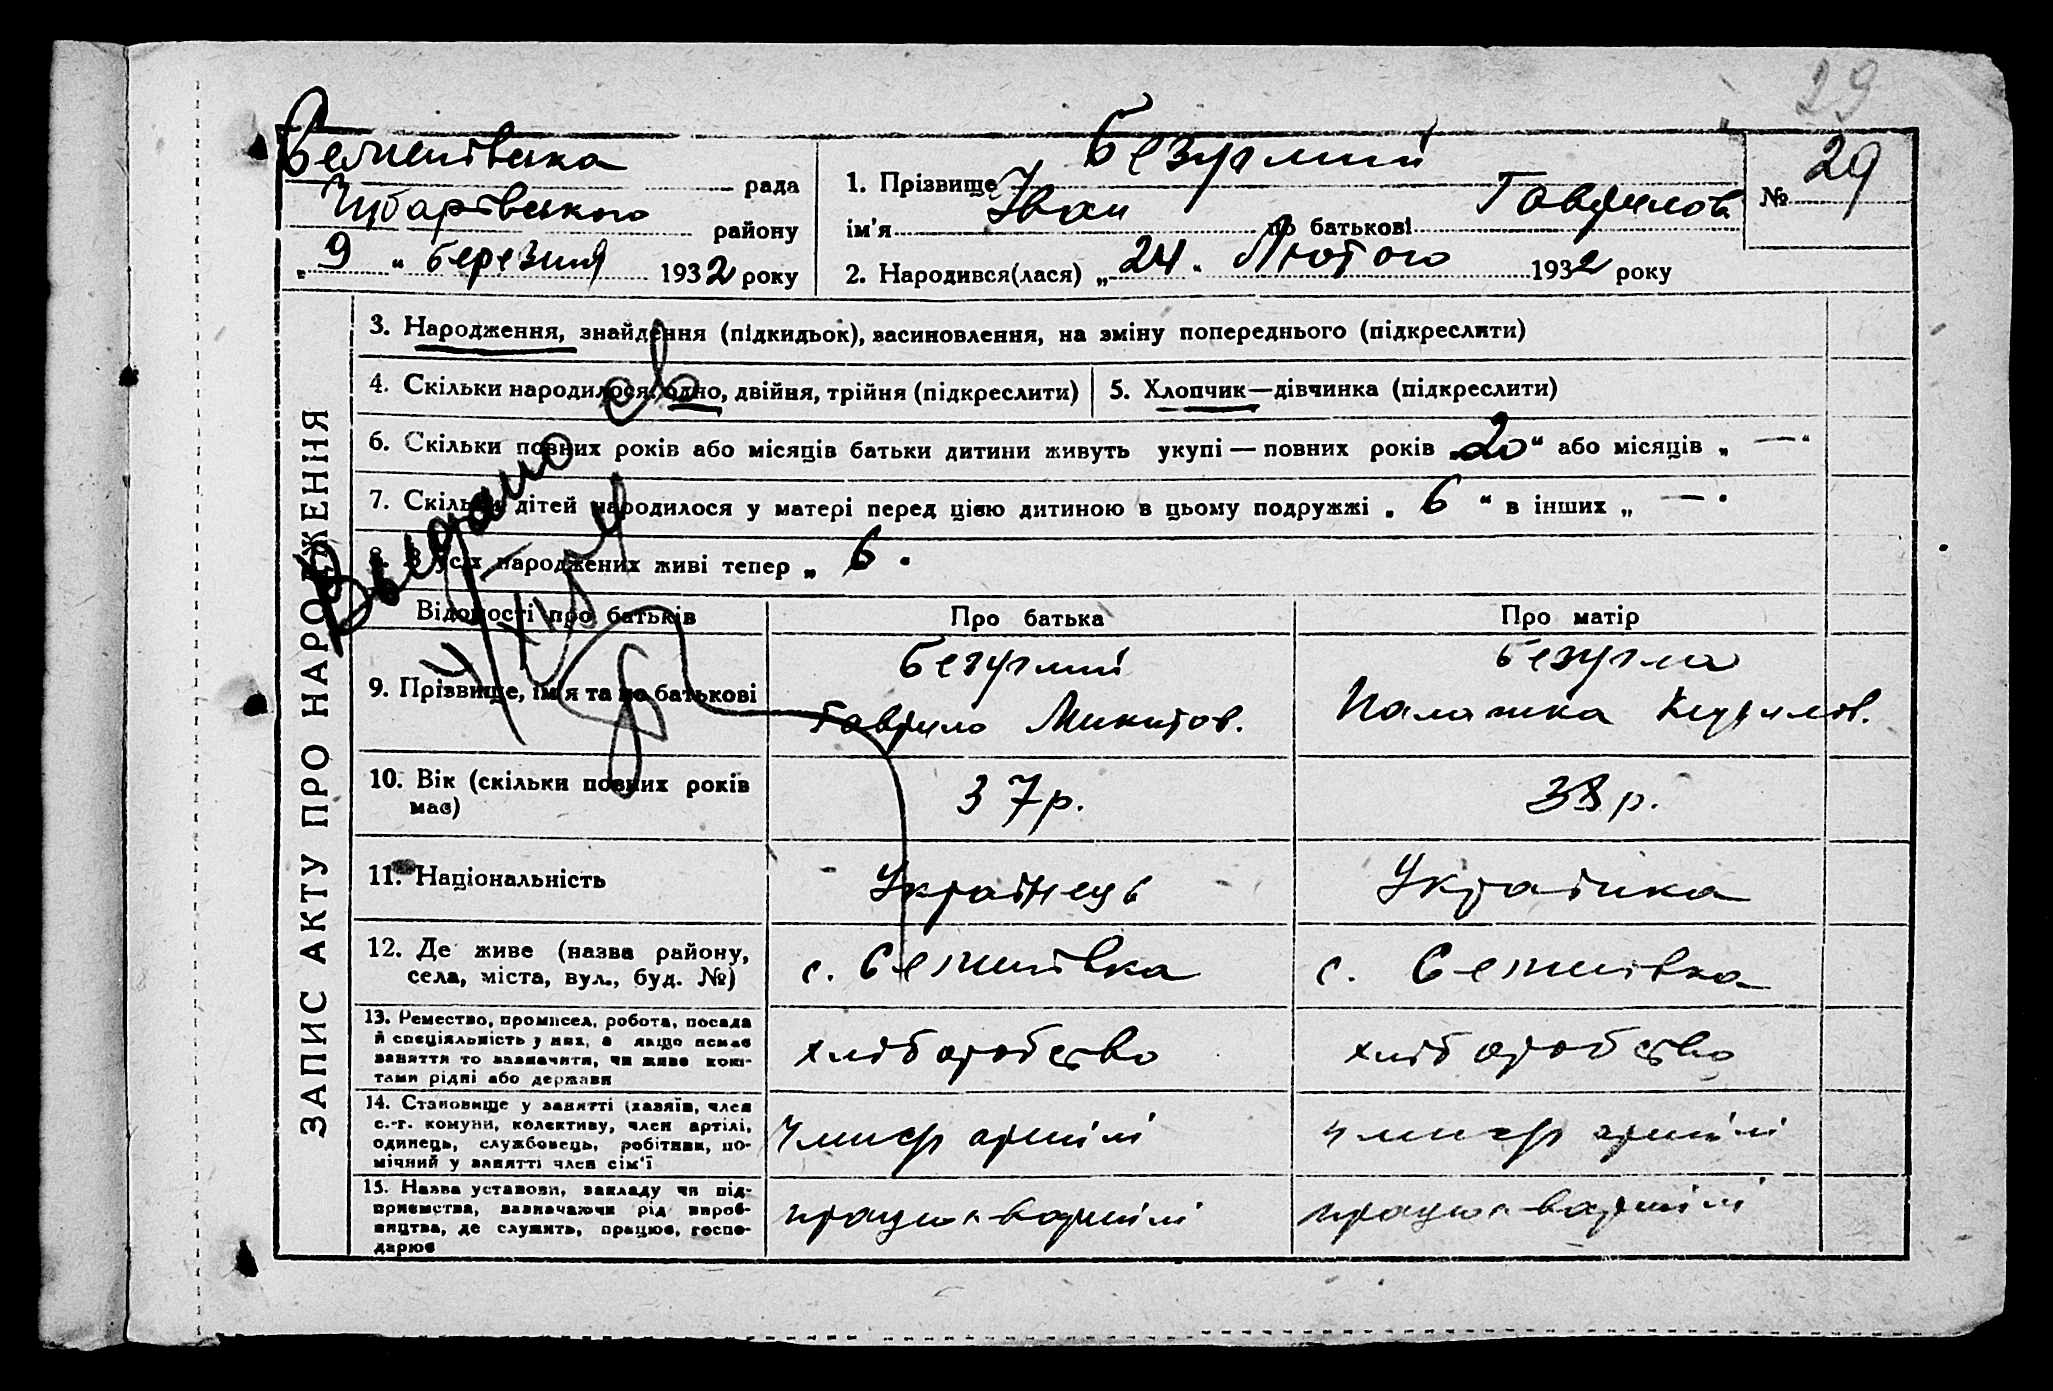 29
Семенівська рада
Чубарівського району
„ 9 “ березня 1932 року
1. Прізвище Безуглий
ім'я Іван по батькові Гаврилов.
№ 29
2. Народився(лася) „ 24 “ Лютого 1932 року
ЗАПИС АКТУ ПРО НАРОДЖЕННЯ
3. Народження, знайдення (підкидьок), васиновлення, на зміну попереднього (підкреслити)
4. Скільки народилося: одно, двійня, трійня (підкреслити)
5. Хлопчик—дівчинка (підкреслити)
6. Скільки повних років або місяців батьки дитини живуть укупі — повних років „20“ або місяців „ — “
7. Скільки дітей народилося у матері перед цією дитиною в цьому подружжі „ 6 “ в інших „ — “
8. З усіх народжених живі тепер „ 6 “
Выдано св
Відомості про батьків
Про батька
Про матір
9. Прізвище, ім'я та по батькові
Безуглий
Гаврило Микитов.
Безугла
Палажка Кирилов.
10. Вік (скільки повних років
має)
37р.
38р.
11. Національність
Українець
Українка
12. Де живе (назва району,
села, міста, вул., буд. №)
с. Семенівка
с. Семенівка
13. Ремество, промисел, робота, посада
й спеціяльність у них, а якщо немає
заняття то зазначити, чи живе кош-
тами рідні або держави
хліборобство
хліборобство
14. Становище у занятті (хазяїн, член
с.-г. комуни, колективу, член артілі,
одинець, службовець, робітник, по-
мічний у занятті член сім'ї
член артілі
член артілі
15. Назва установи, закладу чи під-
приємства, зазначаючи рід вироб-
ництва, де служить, працює, госпо-
дарює
працює в артілі
працює в артілі